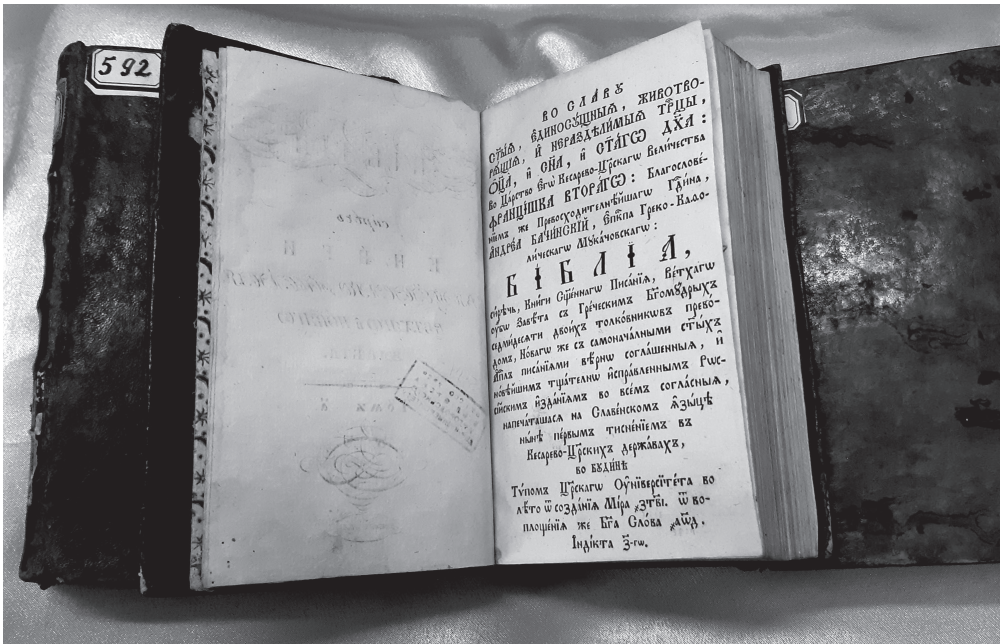 592
ВО СЛА́ВУ
СТ҃Ы́Ѧ, Є҆ДИНОСꙋ́ЩНЫѦ, ЖИВОТВО-
РѦ́ЩІѦ, И҆ НЕРАЗДѢЛИ́МЫѦ ТРⷪ҇ЦЫ,
Ѻ҆ЦА҃, И҆ СН҃А, И҆ СТ҃А́ГѠ ДХ҃А:
Во Ца́рство Є҆гѡ̀ Кесарево-Цр҃скагѡ Вели́чества
ФРАНЦИ́ШКА ВТОРА́ГѠ: Благослове́-
нїемъ же Превосходи́телнѣйшагѡ Гдⷭ҇и́на,
А҆НДРЕ́А БАЧИ́НСКІЙ, Є҆пⷭ҇кпа Греко-Каѳо-
ли́ческагѡ Мꙋка́човскагѡ:
БІ́БЛІА,
си́рѣчь, Кни́ги Сщ҃е́ннагѡ Писа́нїѧ, Ве́тхагѡ
ᲂу҆́бѡ Завѣ́та съ Гре́ческимъ Бг҃омꙋ́дрыхъ
седми́десѧти двои́хъ толко́вникѡвъ прево́-
домъ, Но́вагѡ же съ самонача́лными ст҃ы́хъ
А҆пⷭ҇лъ писа́нїѧми вѣ́рнѡ соглаше́нныѧ, и҆
нѡвѣ́йшимъ тща́телнѡ и҆спра́вленнымъ Рѡс-
сі́йскимъ и҆зда́нїѧмъ во все́мъ согла́сныѧ,
напеча́ташасѧ на Славе́нскомъ ѧ҆зы́цѣ
ны́нѣ пе́рвымъ тисне́нїемъ въ
Кесарево-Цр҃скихъ держа́вахъ,
ВО БꙊДИ́НѢ
Тѵ́помъ Цр҃скагѡ Оу҆нїверсїте́та во
лѣ́то ѿ созда́нїѧ Мі́ра ҂зтві. ѿ во-
площе́нїѧ же Бг҃а Сло́ва ҂аѡд.
І҆нді́кта з҃-гѡ.